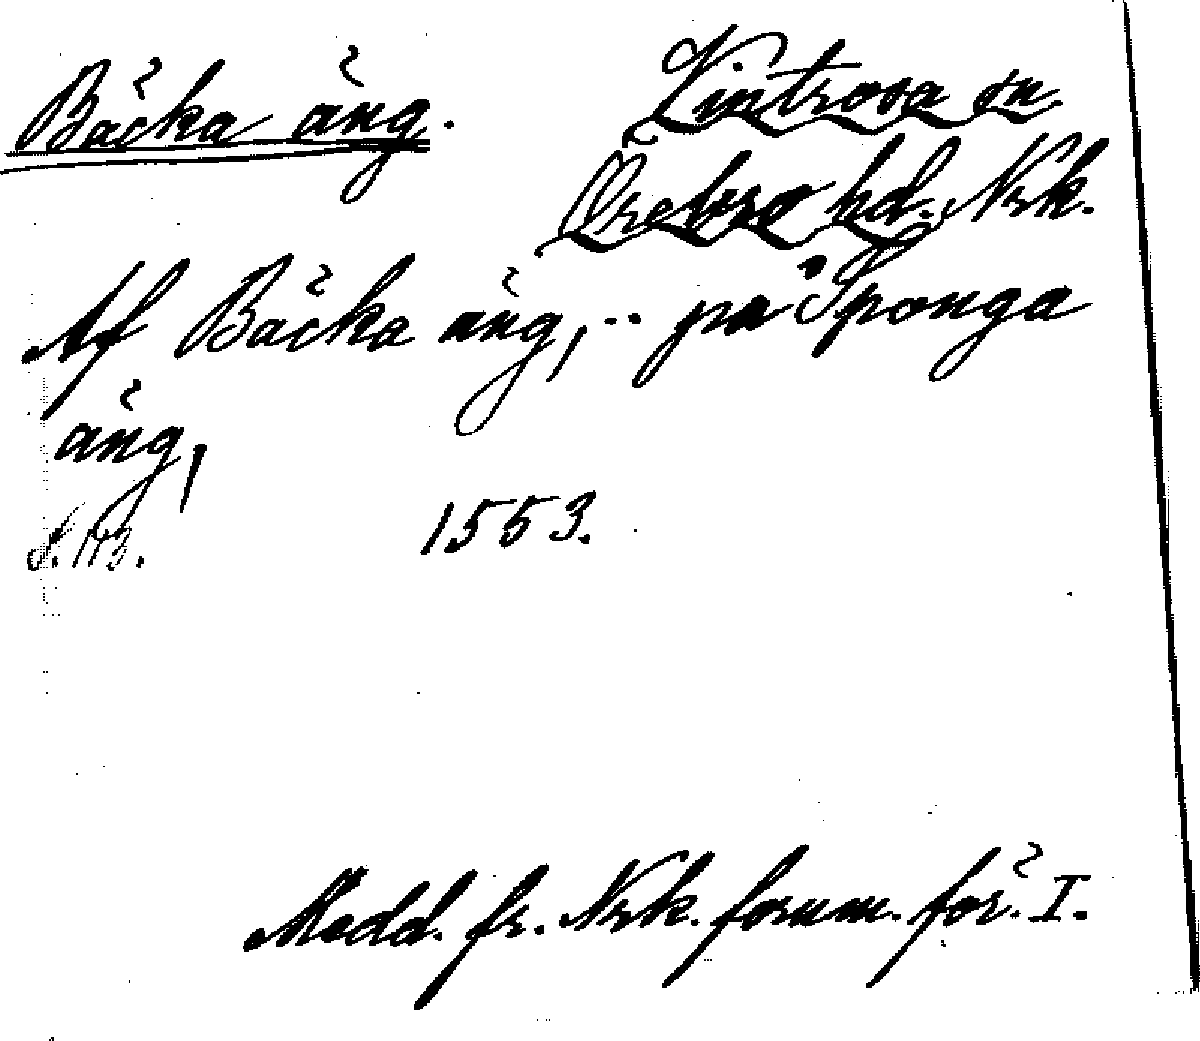 Bäcka äng.
Vintrosa sn.
Örebro hd. Nrk.
Af Bäcka äng, .. på Sponga
äng,
S. 113.
1553.
Medd. fr. Nrk. fornm. för. I.